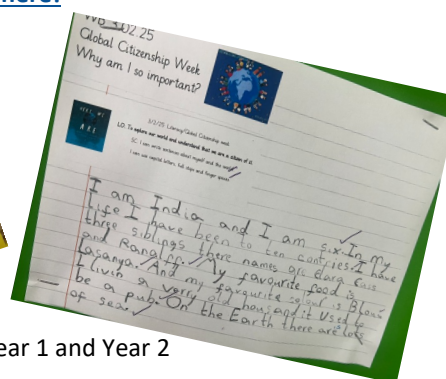 here?
WB 3.02.25
Global Citizenship Week
Why am I so important?
HERE WE
ARE
3/2/25 Literacy/Global Citizenship week
LO. To explore our world and understand that we are a citizen of it.
SC. I can write sentences about myself and the world
I can use capital letters, full stops and finger spaces
I am India and I am six. In my
life I have been to ten contries. I have
three siblings there names are
and My favourite food is
lasanya. And my favourite colour is Blow
I livin a verry old house and it Used to
be a pub. On the Earth there are lots
of sea.
ear 1 and Year 2